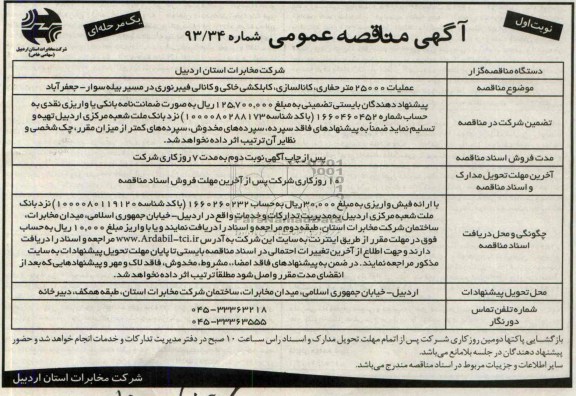 نوبت اول
آگهی مناقصه عمومی شماره ۹۳/۳۴
یک مرحله‌ای
شرکت مخابرات استان اردبیل
(سهامی خاص)
دستگاه مناقصه‌گزار
شرکت مخابرات استان اردبیل
موضوع مناقصه
عملیات ۲۵۰۰۰ متر حفاری، کانالسازی، کابلکشی خاکی و کانالی فیبرنوری در مسیر بیله‌سوار - جعفرآباد
تضمین شرکت در مناقصه
پیشنهاد دهندگان بایستی تضمینی به مبلغ ۱۲۵,۷۰۰,۰۰۰ ریال به صورت ضمانت‌نامه بانکی یا واریزی نقدی به
حساب شماره ۱۶۶۰۴۶۰۴۵۲ (با کد شناسه ۱۰۰۰۰۸۰۲۸۸۱۷۳) نزد بانک ملت شعبه مرکزی اردبیل تهیه و
تسلیم نماید ضمناً به پیشنهادهای فاقد سپرده، سپرده‌های مخدوش، سپرده‌های کمتر از میزان مقرر، چک شخصی و
نظایر آن ترتیب اثر داده نخواهد شد.
مدت فروش اسناد مناقصه
پس از چاپ آگهی نوبت دوم به مدت ۷ روز کاری شرکت
آخرین مهلت تحویل مدارک
و اسناد مناقصه
۱۰ روز کاری شرکت پس از آخرین مهلت فروش اسناد مناقصه
چگونگی و محل دریافت
اسناد مناقصه
با ارائه فیش واریزی به مبلغ ۳۰۰,۰۰۰ ریال به حساب ۱۶۶۰۲۶۰۲۳۲ (با کد شناسه ۱۰۰۰۰۸۰۱۱۹۱۲۰) نزد بانک
ملت شعبه مرکزی اردبیل به مدیریت تدارکات و خدمات واقع در اردبیل - خیابان جمهوری اسلامی، میدان مخابرات،
ساختمان شرکت مخابرات استان، طبقه دوم مراجعه و اسناد را دریافت نمایند و یا با واریز مبلغ ۱۰,۰۰۰ ریال به حساب
فوق در مهلت مقرر از طریق اینترنت به سایت این شرکت به آدرس www.Ardabil-tci.ir مراجعه و اسناد را دریافت
دارند و جهت اطلاع از آخرین تغییرات احتمالی در اسناد مناقصه بایستی تا پایان مهلت تحویل پیشنهادات به سایت
مذکور مراجعه نمایند. در ضمن به پیشنهادهای فاقد امضاء، مشروط، مخدوش، فاقد لاک و مهر و پیشنهادهایی که بعد از
انقضای مدت مقرر واصل شود مطلقاً ترتیب اثر داده نخواهد شد.
محل تحویل پیشنهادات
اردبیل - خیابان جمهوری اسلامی، میدان مخابرات، ساختمان شرکت مخابرات استان، طبقه همکف، دبیرخانه
شماره تلفن تماس
۰۴۵-۳۳۳۶۳۲۱۸
دورنگار
۰۴۵-۳۳۳۶۳۵۵۵
بازگشایی پاکتها دومین روز کاری شرکت پس از اتمام مهلت تحویل مدارک و اسناد راس ساعت ۱۰ صبح در دفتر مدیریت تدارکات و خدمات انجام خواهد شد و حضور
پیشنهاد دهندگان در جلسه بلامانع می‌باشد.
سایر اطلاعات و جزییات مربوط در اسناد مناقصه مندرج می‌باشد.
شرکت مخابرات استان اردبیل